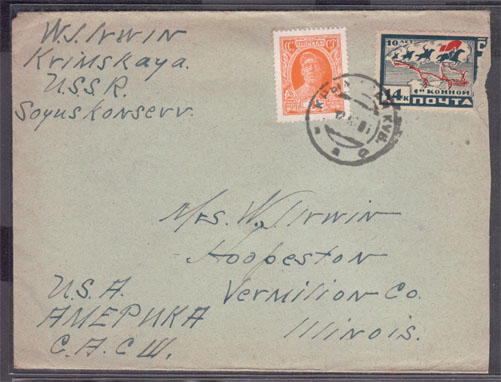 W.J. Irwin
Krimskaya.
U.S.S.R.
Soyuskonserv.
10 ЛЕТ
14 к
1ой КОННОЙ
ПОЧТА
КУБ.
Mrs. W. J. Irwin
Hoopeston
Vermilion Co.
Illinois.
U.S.A.
АМЕРИКА
С.А.С.Ш.